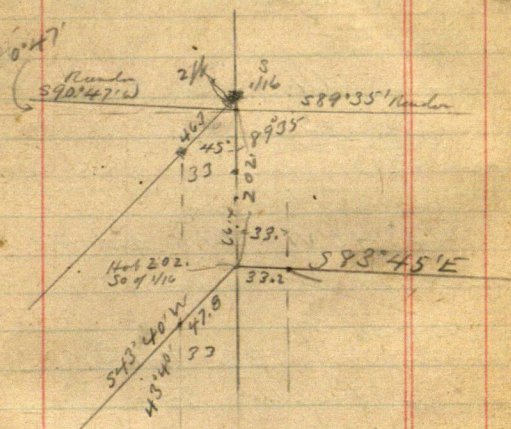 0°47'
Random
S90°47'W
S
1/16
S89°35' Random
46.7
45°
89°35
33
202.
66.4
33.
Hub 202.
So of 1/16
33.2
S83°45'E
S43°40'W
47.8
43°40'
33